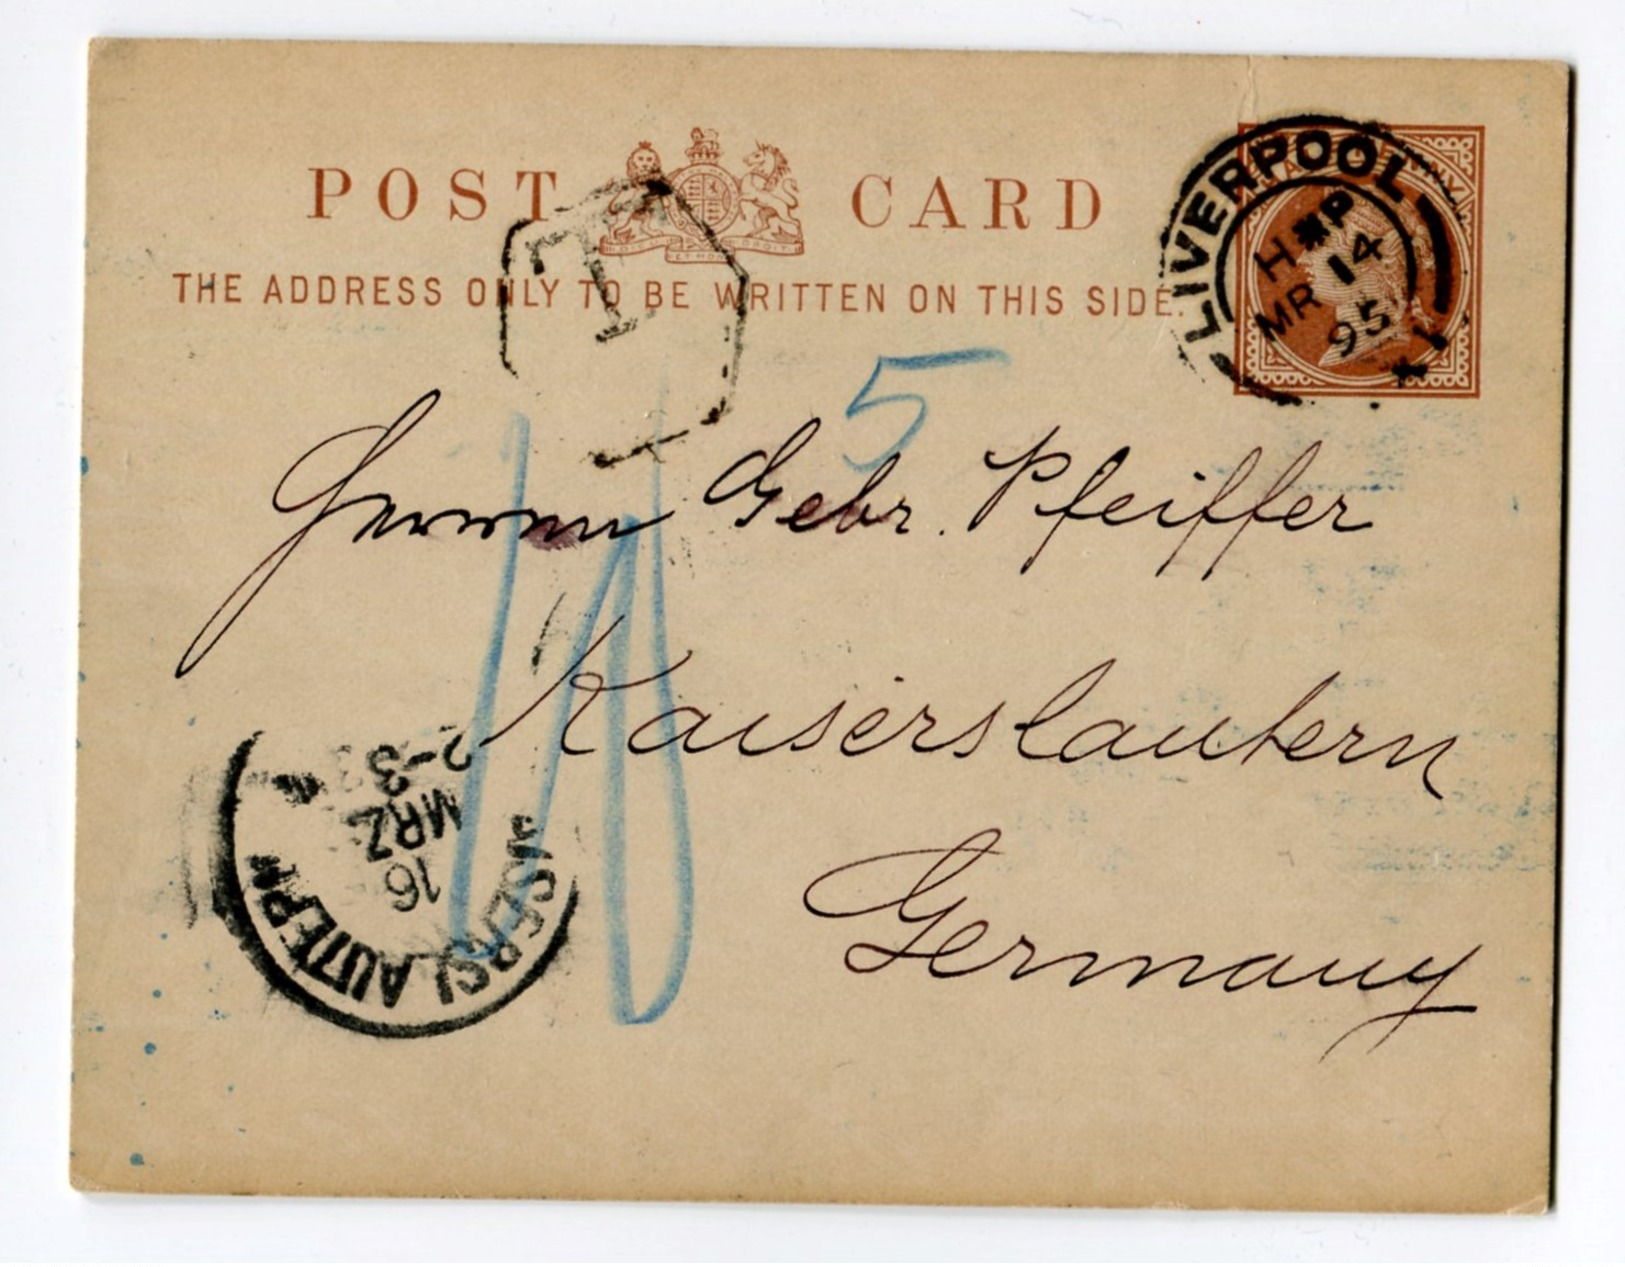 POST CARD
THE ADDRESS ONLY TO BE WRITTEN ON THIS SIDE.
LIVERPOOL
H P
MR 14
95
1
T
5
10
Herren Gebr. Pfeiffer
Kaiserslautern
Germany
AISERSLAUTERN
16
MRZ
2-3